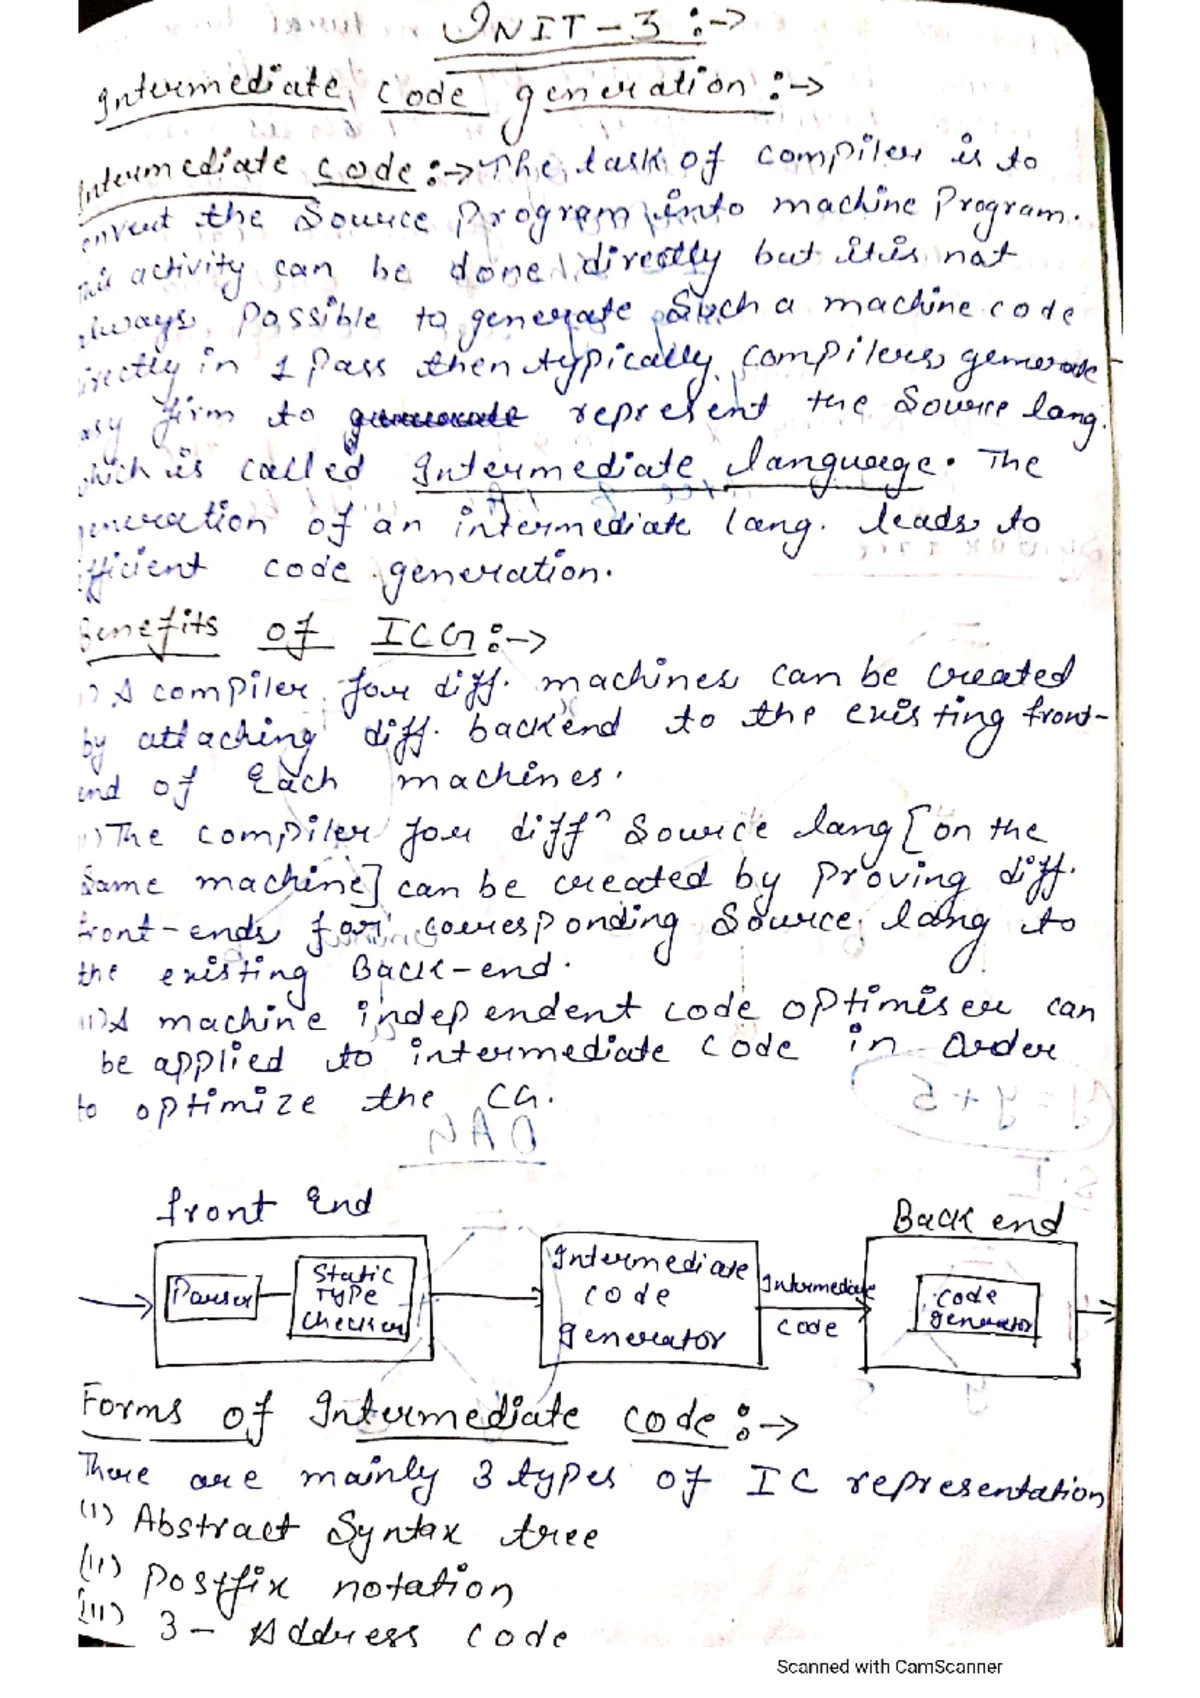 UNIT-3 :->
Intermediate code generation :->
Intermediate code :-> The task of compiler is to
onvert the Source Program into machine Program.
activity can be done directly but it is not
lways Possible to generate Such a machine code
irectly in 1 Pass then typically compilers generate
asy firm to generate represent the Source lang.
which is called Intermediate language. The
eneration of an intermediate lang. leads to
fficient code generation.
Benefits of ICG :->
i) A compiler for diff. machines can be created
by attaching diff. backend to the existing front-
end of Each machines.
ii) The compiler for diff^n Source lang [on the
Same machine] can be created by Proving diff.
front-ends for corresponding Source lang to
the existing Back-end.
iii) A machine independent code optimiser can
be applied to intermediate code in Order
to optimize the CG.
front End
Back end
Parser
Static Type Checker
Intermediate code generator
Intermediate code
code generator
Forms of Intermediate code :->
There are mainly 3 types of IC representation
(i) Abstract Syntax tree
(ii) Postfix notation
(iii) 3- Address code
Scanned with CamScanner